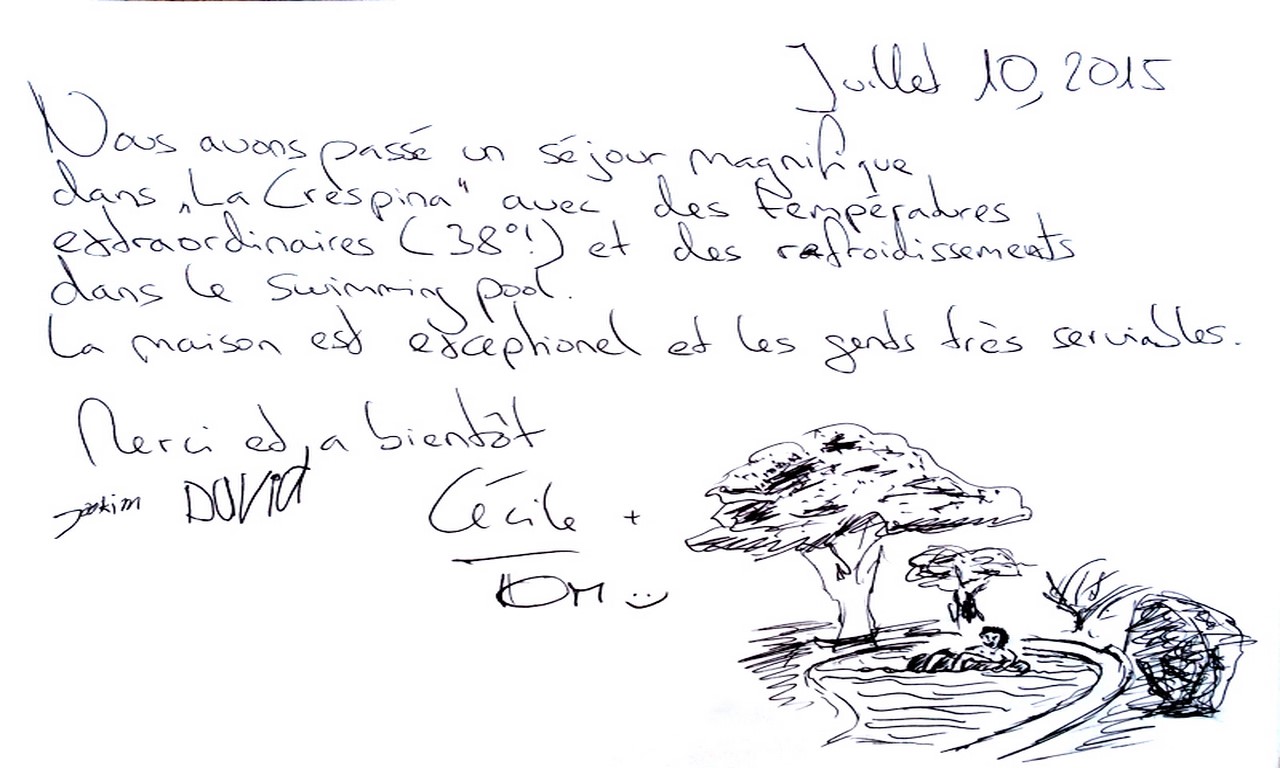 Juillet 10, 2015
Nous avons passé un séjour magnifique
dans „La Crespina“ avec des températures
extraordinaires (38°!) et des rafroidissements
dans le swimming pool.
La maison est exceptionel et les gents très serviables.
Merci et a bientôt
Joakim DAVID Cécile +
TOM :)